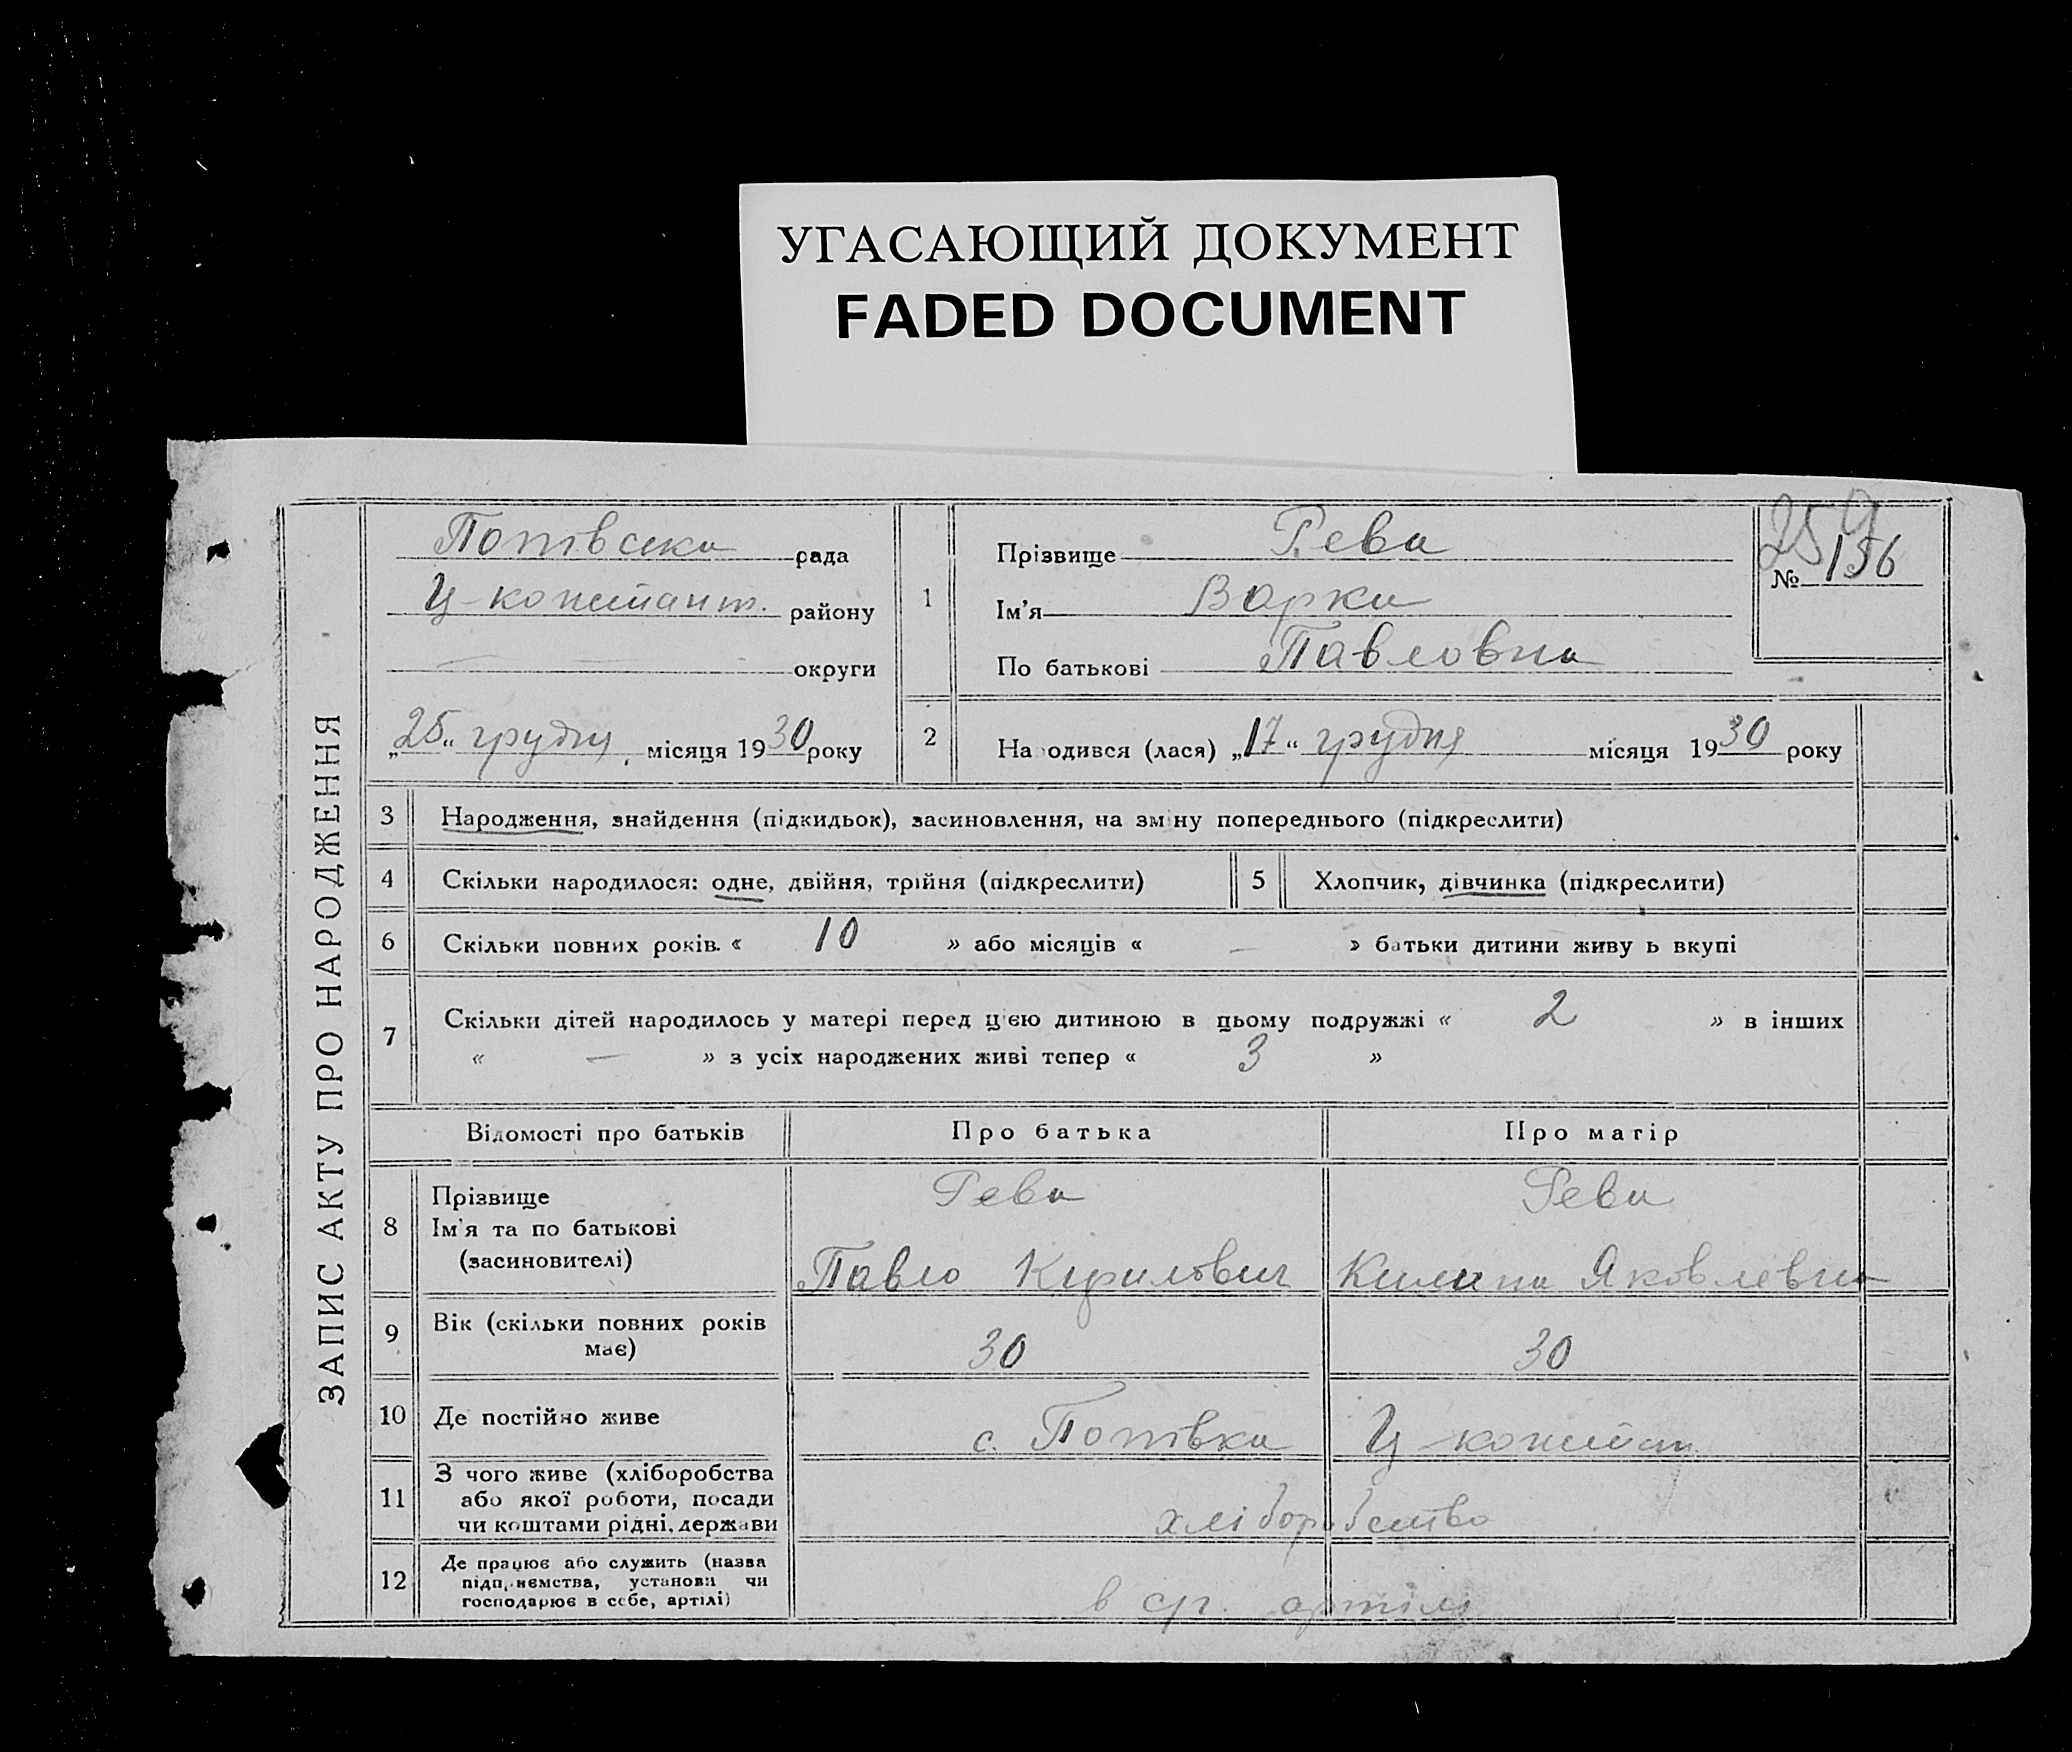 УГАСАЮЩИЙ ДОКУМЕНТ
FADED DOCUMENT
ЗАПИС АКТУ ПРО НАРОДЖЕННЯ
Потівська рада
Ц-констант. району
округи
„25“ грудня місяця 1930 року
259
№ 156
1
Прізвище Рева
Ім'я Варка
По батькові Павловна
2
На одився (лася) „17“ грудня місяця 1930 року
3 Народження, знайдення (підкидьок), засиновлення, на зміну попереднього (підкреслити)
4 Скільки народилося: одне, двійня, трійня (підкреслити)
5 Хлопчик, дівчинка (підкреслити)
6 Скільки повних років. « 10 » або місяців « — » батьки дитини живу ь вкупі
7 Скільки дітей народилось у матері перед цією дитиною в цьому подружжі « 2 » в інших
« — » з усіх народжених живі тепер « 3 »
Відомості про батьків Про батька Про матір
8 Прізвище Рева Рева
Ім'я та по батькові
(засиновителі) Павло Кирилович Килина Яковлевна
9 Вік (скільки повних років
має) 30 30
10 Де постійно живе с. Потівка Ц-констан
11 З чого живе (хліборобства
або якої роботи, посади
чи коштами рідні, держави хліборобство
12 Де працює або служить (назва
підп, иємства, установи чи
господарює в себе, артілі) в ср. артілі